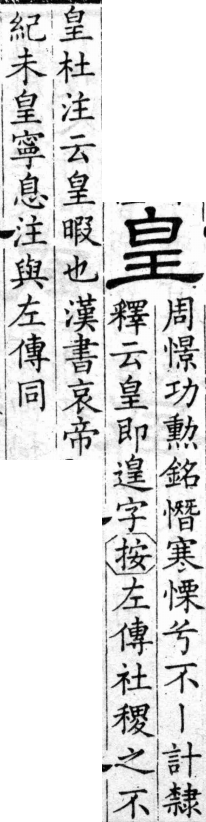 皇
周憬功勲銘憯寒慄兮不丨計隸
釋云皇即遑字按左傳社稷之不
皇杜注云皇暇也漢書哀帝
紀未皇寧息注與左傳同